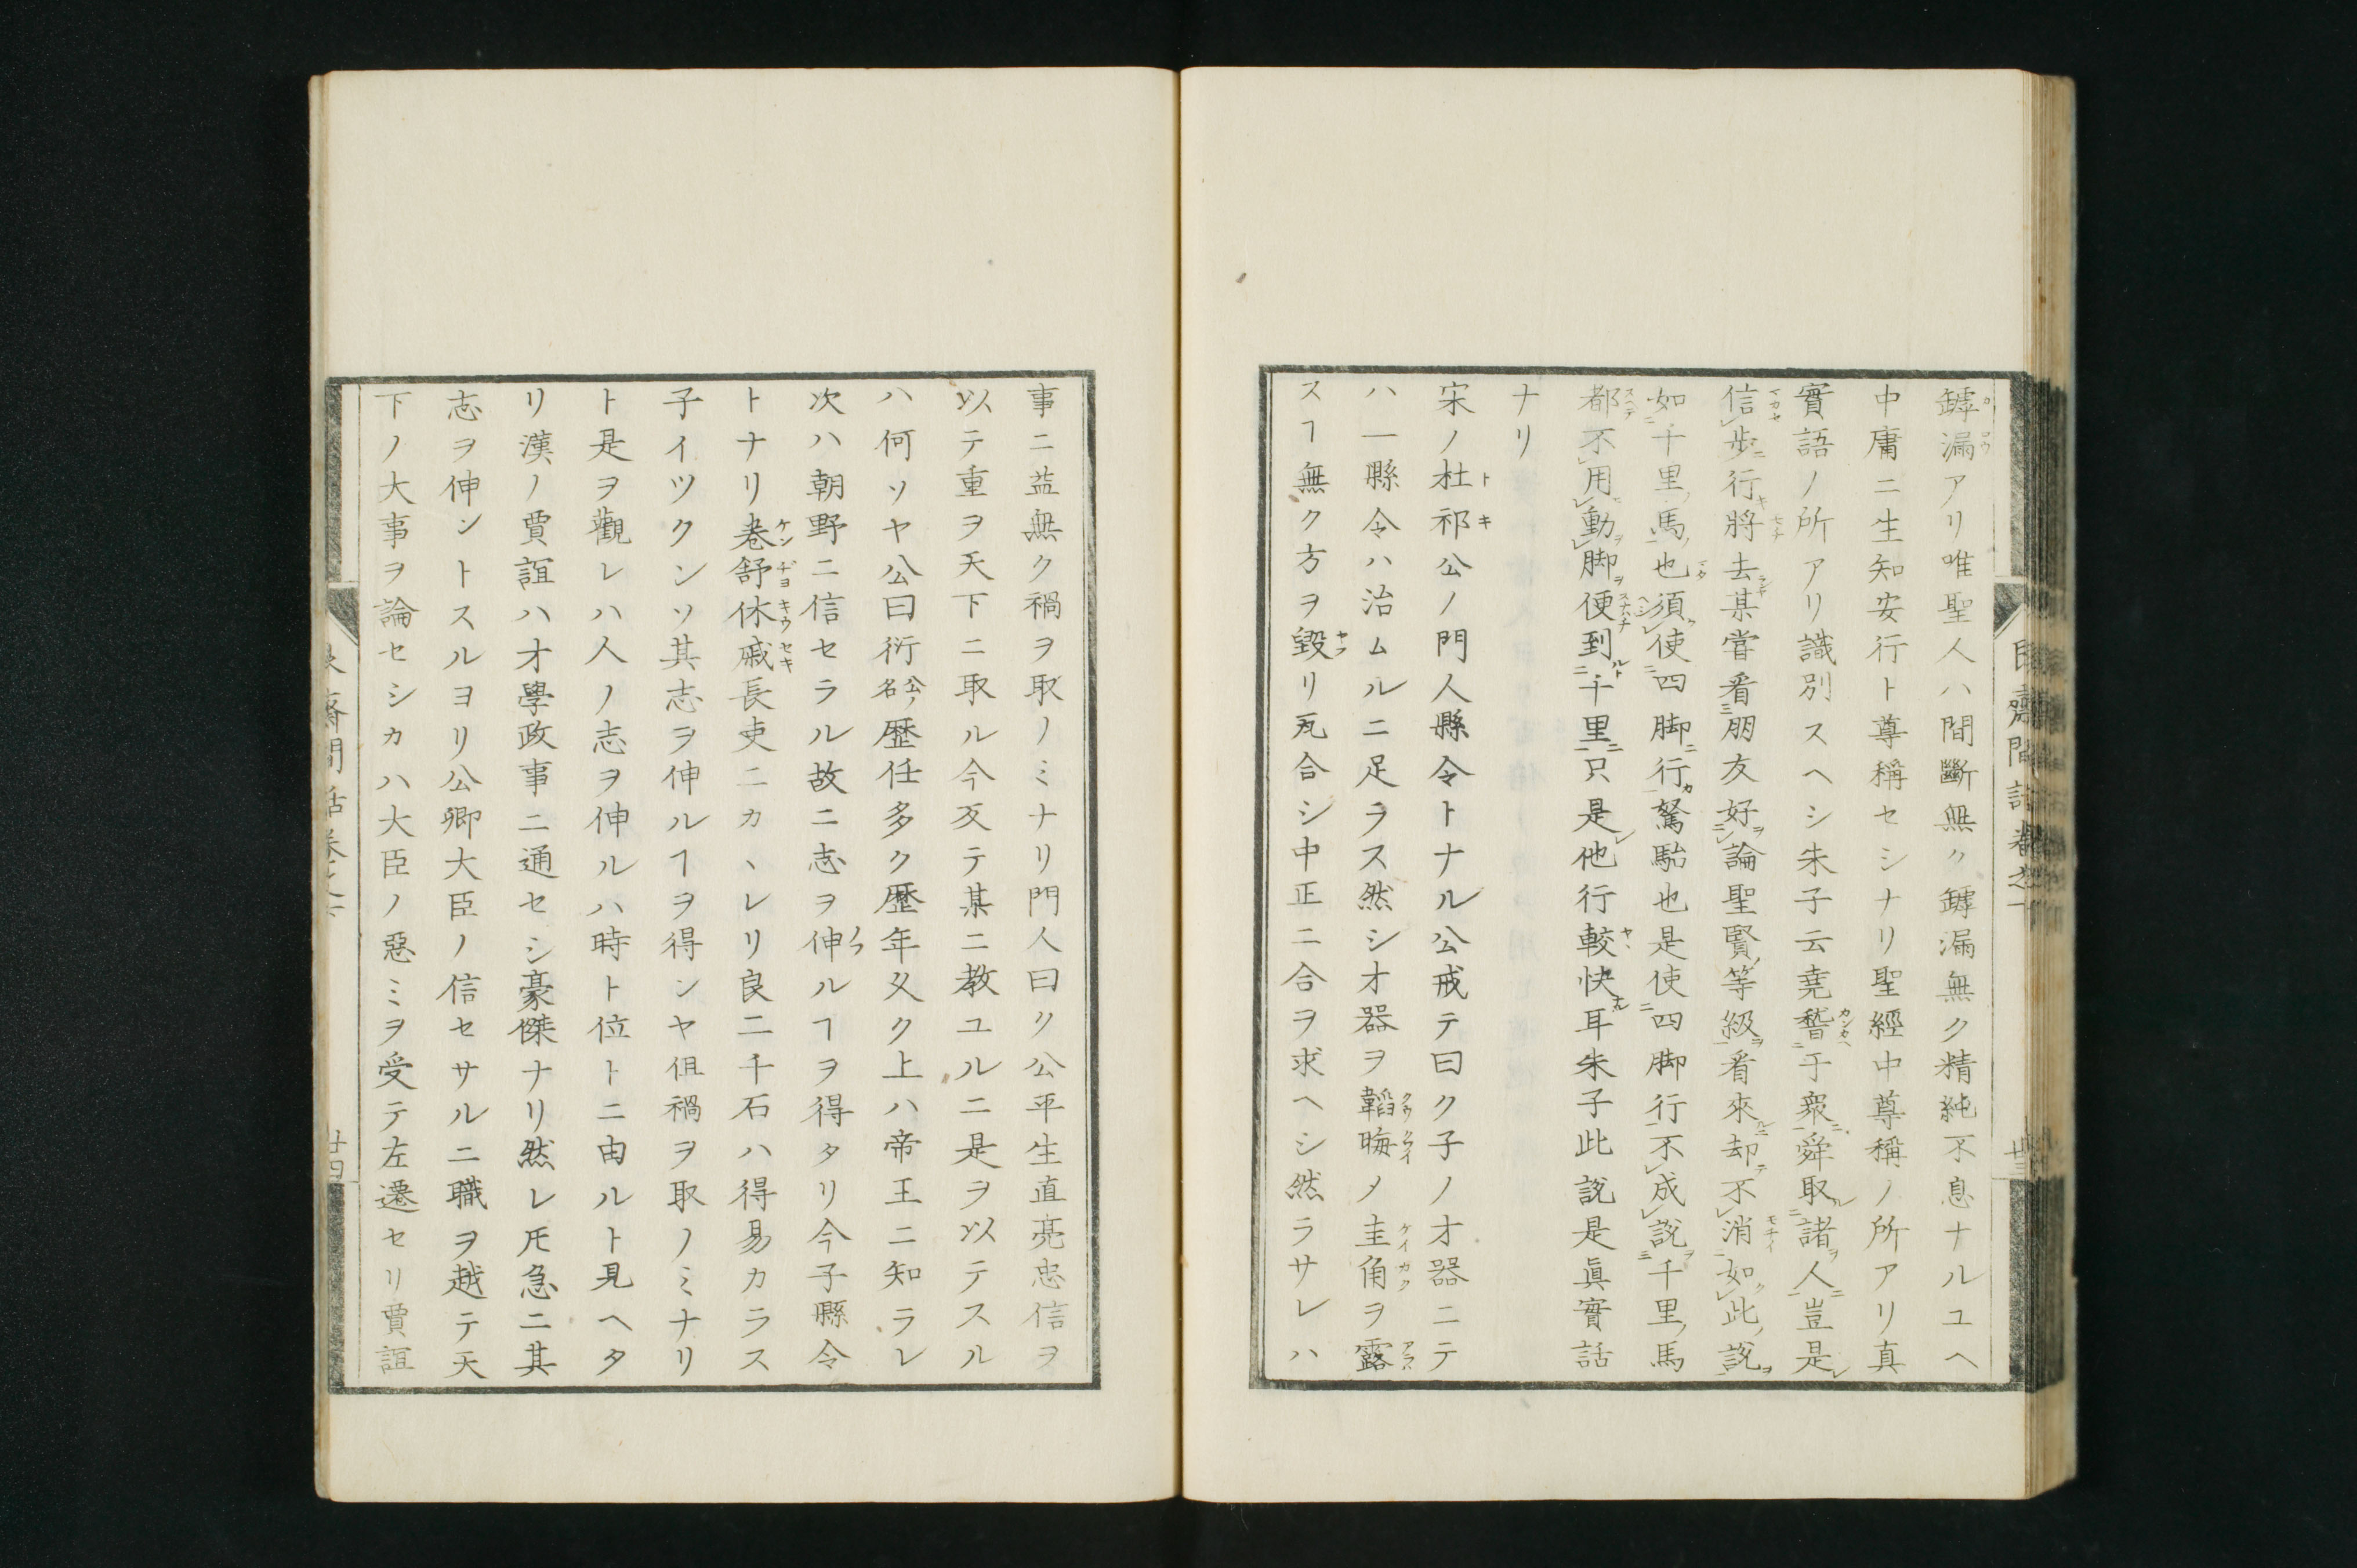 罅漏アリ唯聖人ハ間斷無ク罅漏無ク精純不息ナルユヘ
中庸ニ生知安行ト尊稱セシナリ聖經中尊稱ノ所アリ真
實語ノ所アリ識別スヘシ朱子云堯稽于衆舜取諸人豈是
信歩行將去某嘗看朋友好論聖賢等級看來却不消如此説
如千里馬也須使四脚行駑駘也是使四脚行不成説千里馬
都不用動脚便到千里只是他行較快耳朱子此説是眞實話
ナリ
宋ノ杜祁公ノ門人縣令トナル公戒テ曰ク子ノオ器ニテ
ハ一縣令ハ治ムルニ足ラス然シオ器ヲ韜晦メ圭角ヲ露
スヿ無ク方ヲ毀リ瓦合シ中正ニ合ヲ求ヘシ然ラサレハ
事ニ益無ク禍ヲ取ノミナリ門人曰ク公平生直亮忠信ヲ
以テ重ヲ天下ニ取ル今反テ某ニ教ユルニ是ヲ以テスル
ハ何ソヤ公曰衍公ノ名歴任多ク歴年久ク上ハ帝王ニ知ラレ
次ハ朝野ニ信セラル故ニ志ヲ伸ルヿヲ得タリ今子縣令
トナリ卷舒休戚長吏ニカヽレリ良二千石ハ得易カラス
子イツクンソ其志ヲ伸ルヿヲ得ンヤ伹禍ヲ取ノミナリ
ト是ヲ觀レハ人ノ志ヲ伸ルハ時ト位トニ由ルト見ヘタ
リ漢ノ賈誼ハオ學政事ニ通セシ豪傑ナリ然レ𪜈急ニ其
志ヲ伸ントスルヨリ公卿大臣ノ信セサルニ職ヲ越テ天
下ノ大事ヲ論セシカハ大臣ノ惡ミヲ受テ左遷セリ賈誼
廿四